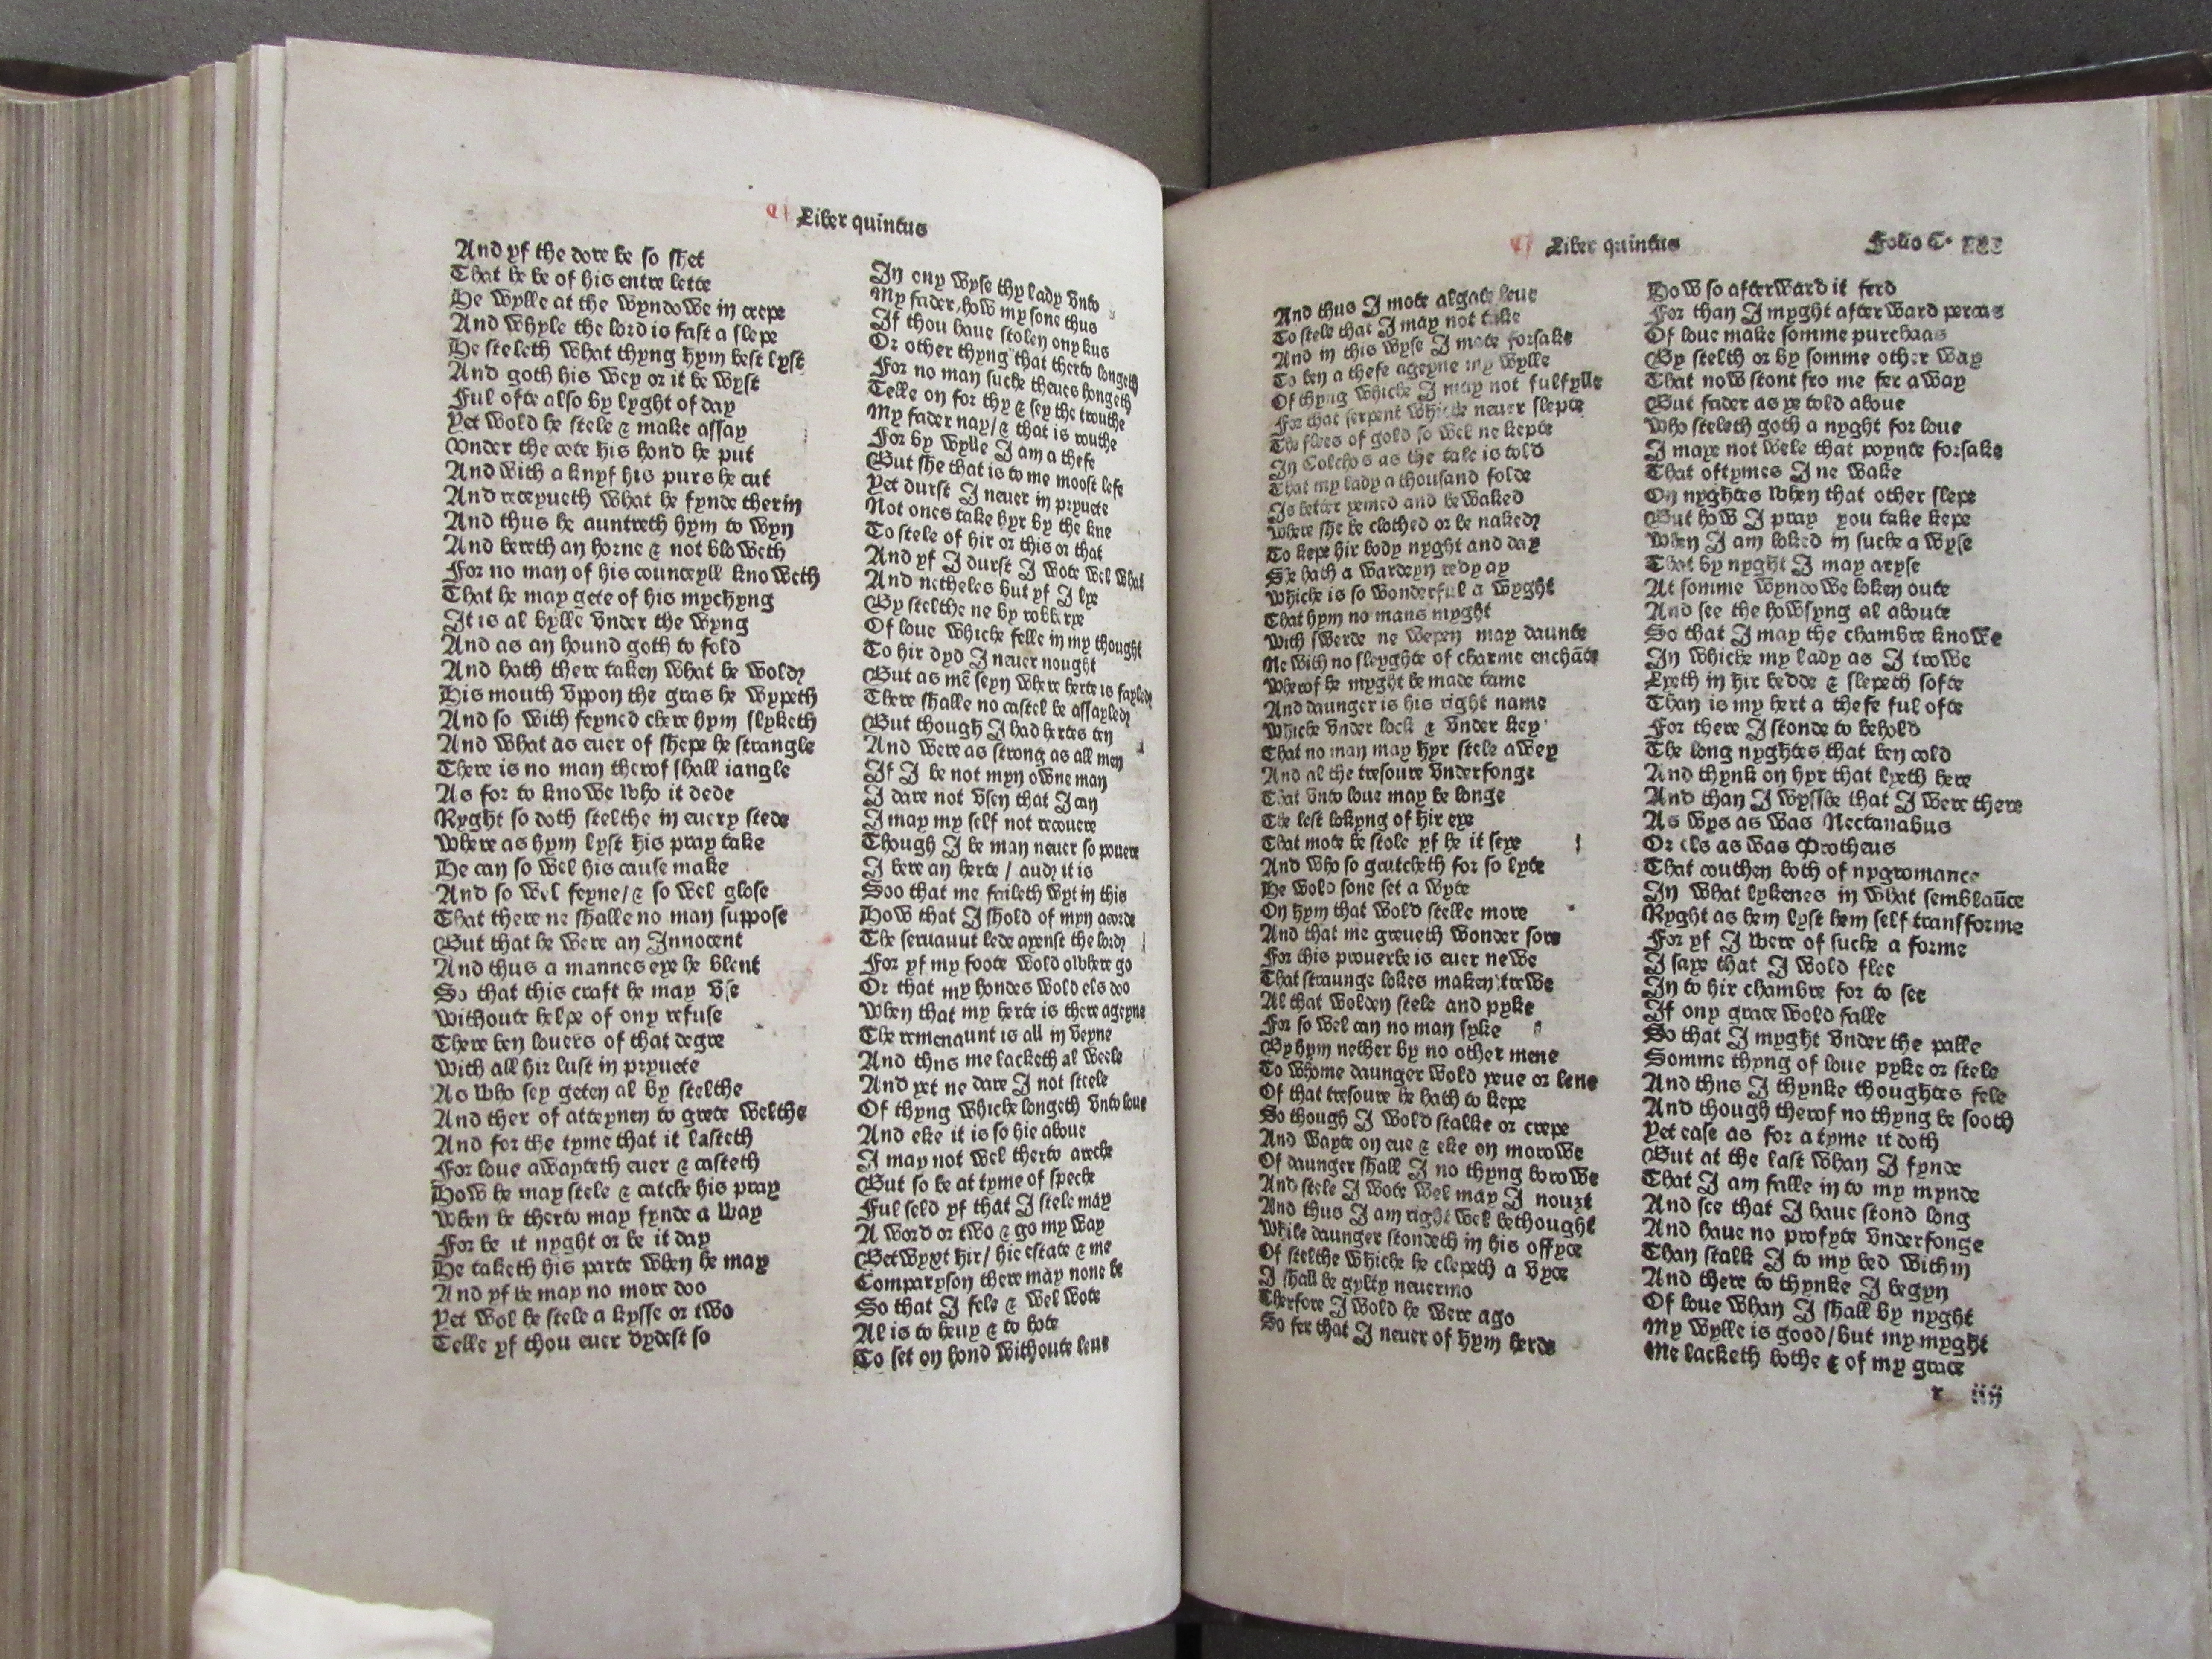 Liber quintus
And yf the dore be so shet
That he be of his entre lette
He wylle at the wyndowe in crepe
And whyle the lord is fast a slepe
He steleth what thyng hym best lyst
And goth his wey or it be wyst
Ful ofte also by lyght of day
Yet wold he stele & make assay
Vnder the cote his hond he put
And with a knyf his purs he cut
And receyueth what he fynde therin
And thus he auntreth hym to wyn
And bereth an horne & not bloweth
For no man of his counceyll knoweth
That he may gete of his mychyng
It is al bylle vnder the wyng
And as an hound goth to fold
And hath there taken what he wold
His mouth vpon the gras he wypeth
And so with feyned chere hym slyketh
And what as euer of shepe he strangle
There is no man therof shall iangle
As for to knowe who it dede
Ryght so doth stelthe in euery stede
Where as hym lyst his pray take
He can so wel his cause make
And so wel feyne/& so wel glose
That there ne shalle no man suppose
But that he were an Innocent
And thus a mannes eye he blent
So that this craft he may vse
Withoute helpe of ony refuse
There ben louers of that degre
With all hir lust in pryuete
As who sey geten al by stelthe
And ther of atteynen to grete welthe
And for the tyme that it lasteth
For loue awayteth euer & casteth
How he may stele & catche his pray
When he therto may fynde a way
For be it nyght or be it day
He taketh his parte when he may
And yf he may no more doo
Yet wol he stele a kysse or two
Telle yf thou euer dydest so
In ony wyse thy lady vnto
My fader, how my sone thus
If thou haue stolen ony kus
Or other thyng that therto longeth
For no man suche theues hongeth
Telle on for thy & sey the trouthe
My fader nay/& that is routhe
For by wylle I am a thefe
But she that is to me moost lefe
Yet durst I neuer in pryuete
Not ones take hyr by the kne
To stele of hir or this or that
And yf I durst I wote wel what
And netheles but yf I lye
By stelthe ne by robberye
Of loue whiche felle in my thought
To hir dyd I neuer nought
But as mē seyn where herte is fayled
There shalle no castel be assayled
But though I had hertes ten
And were as strong as all men
If I be not myn owne man
I dare not vsen that I can
I may my self not recouere
Though I be man neuer so pouere
I bere an herte / and it is
Soo that me faileth wyt in this
How that I shold of myn acorde
The seruauut lede ayenst the lord
For yf my foote wold olwhere go
Or that my hondes wold els doo
When that my herte is there ageyne
The remenaunt is all in veyne
And thns me lacketh al weele
And yet ne dare I not steele
Of thyng whiche longeth vnto loue
And eke it is so hie aboue
I may not wel therto areche
But so be at tyme of speche
Ful seld yf that I stele may
A word or two & go my way
Betwyxt hir/ hie estate & me
Comparyson there may none be
So that I fele & wel wote
Al is to heuy & to hote
To set on hond withoute leue
Liber quintus Folio C.
And thus I mote algate leue
To stele that I may not take
And in this wyse I mote forsake
To ben a thefe ageyne my wylle
Of thyng whiche I may not fulfylle
For that serpent whiche neuer slepte
The flees of gold so wel ne kepte
In Colchos as the tale is told
That my lady a thousand folde
Is better yemed and be waked
Where she be clothed or be naked
To kepe hir body nyght and day
She hath a wardeyn redy ay
Whiche is so wonderful a wyght
That hym no mans myght
With swerde ne wepen may daunte
Ne with no sleyghte of charme enchāte
Wherof he myght be made tame
And daunger is his right name
Whiche vnder lock & vnder key
That no man may hyr stele awey
And al the tresoure vnderfonge
That vnto loue may be longe
The lest lokyng of hir eye
That mote be stole yf he it seye
And who so grutcheth for so lyte
He wold sone set a wyte
On hym that wold stelle more
And that me greueth wonder sore
For this prouerbe is euer newe
That straunge lokes maken trewe
Al that wolden stele and pyke
For so wel can no man syke
By hym nether by no other mene
To whome daunger wold yeue or lene
Of that tresoure he hath to kepe
So though I wold stalke or crepe
And wayte on eue & eke on morowe
Of daunger shall I no thyng borowe
And stele I wote wel may I nouzt
And thus I am right wel bethought
While daunger stondeth in his offyce
Of stelthe whiche he clepeth a vyce
I shall be gylty neuermo
Therfore I wold he were ago
So fer that I neuer of hym herde
How so afterward it ferd
For than I myght afterward percas
Of loue make somme purchaas
By stelth or by somme other way
That now stont fro me fer away
But fader as ye told aboue
Who steleth goth a nyght for loue
I maye not wele that poynte forsake
That oftymes I ne wake
On nyghtes when that other slepe
But how I pray you take kepe
When I am loked in suche a wyse
That by nyght I may aryse
At somme wyndowe loken oute
And see the howsyng al aboute
So that I may the chambre knowe
In whiche my lady as I trowe
Lyeth in hir bedde & slepeth softe
Than is my hert a thefe ful ofte
For there I stonde to behold
The long nyghtes that ben cold
And thynk on hyr that lyeth here
And than I wysshe that I were there
As wys as was Nectanabus
Or els as was Protheus
That couthen both of nygromance
In what lykenes in what semblaūce
Ryght as hem lyst hem self transforme
For yf I were of suche a forme
I saye that I wold flee
In to hir chambre for to see
If ony grace wold falle
So that I myght vnder the palle
Somme thyng of loue pyke or stele
And thns I thynke thoughtes fele
And though therof no thyng be sooth
Yet ease as for a tyme it doth
But at the last whan I fynde
That I am falle in to my mynde
And see that I haue stond long
And haue no profyte vnderfonge
Than stalk I to my bed within
And there to thynke I begyn
Of loue whan I shall by nyght
My wylle is good/but my myght
Me lacketh bothe & of my grace
r iiij